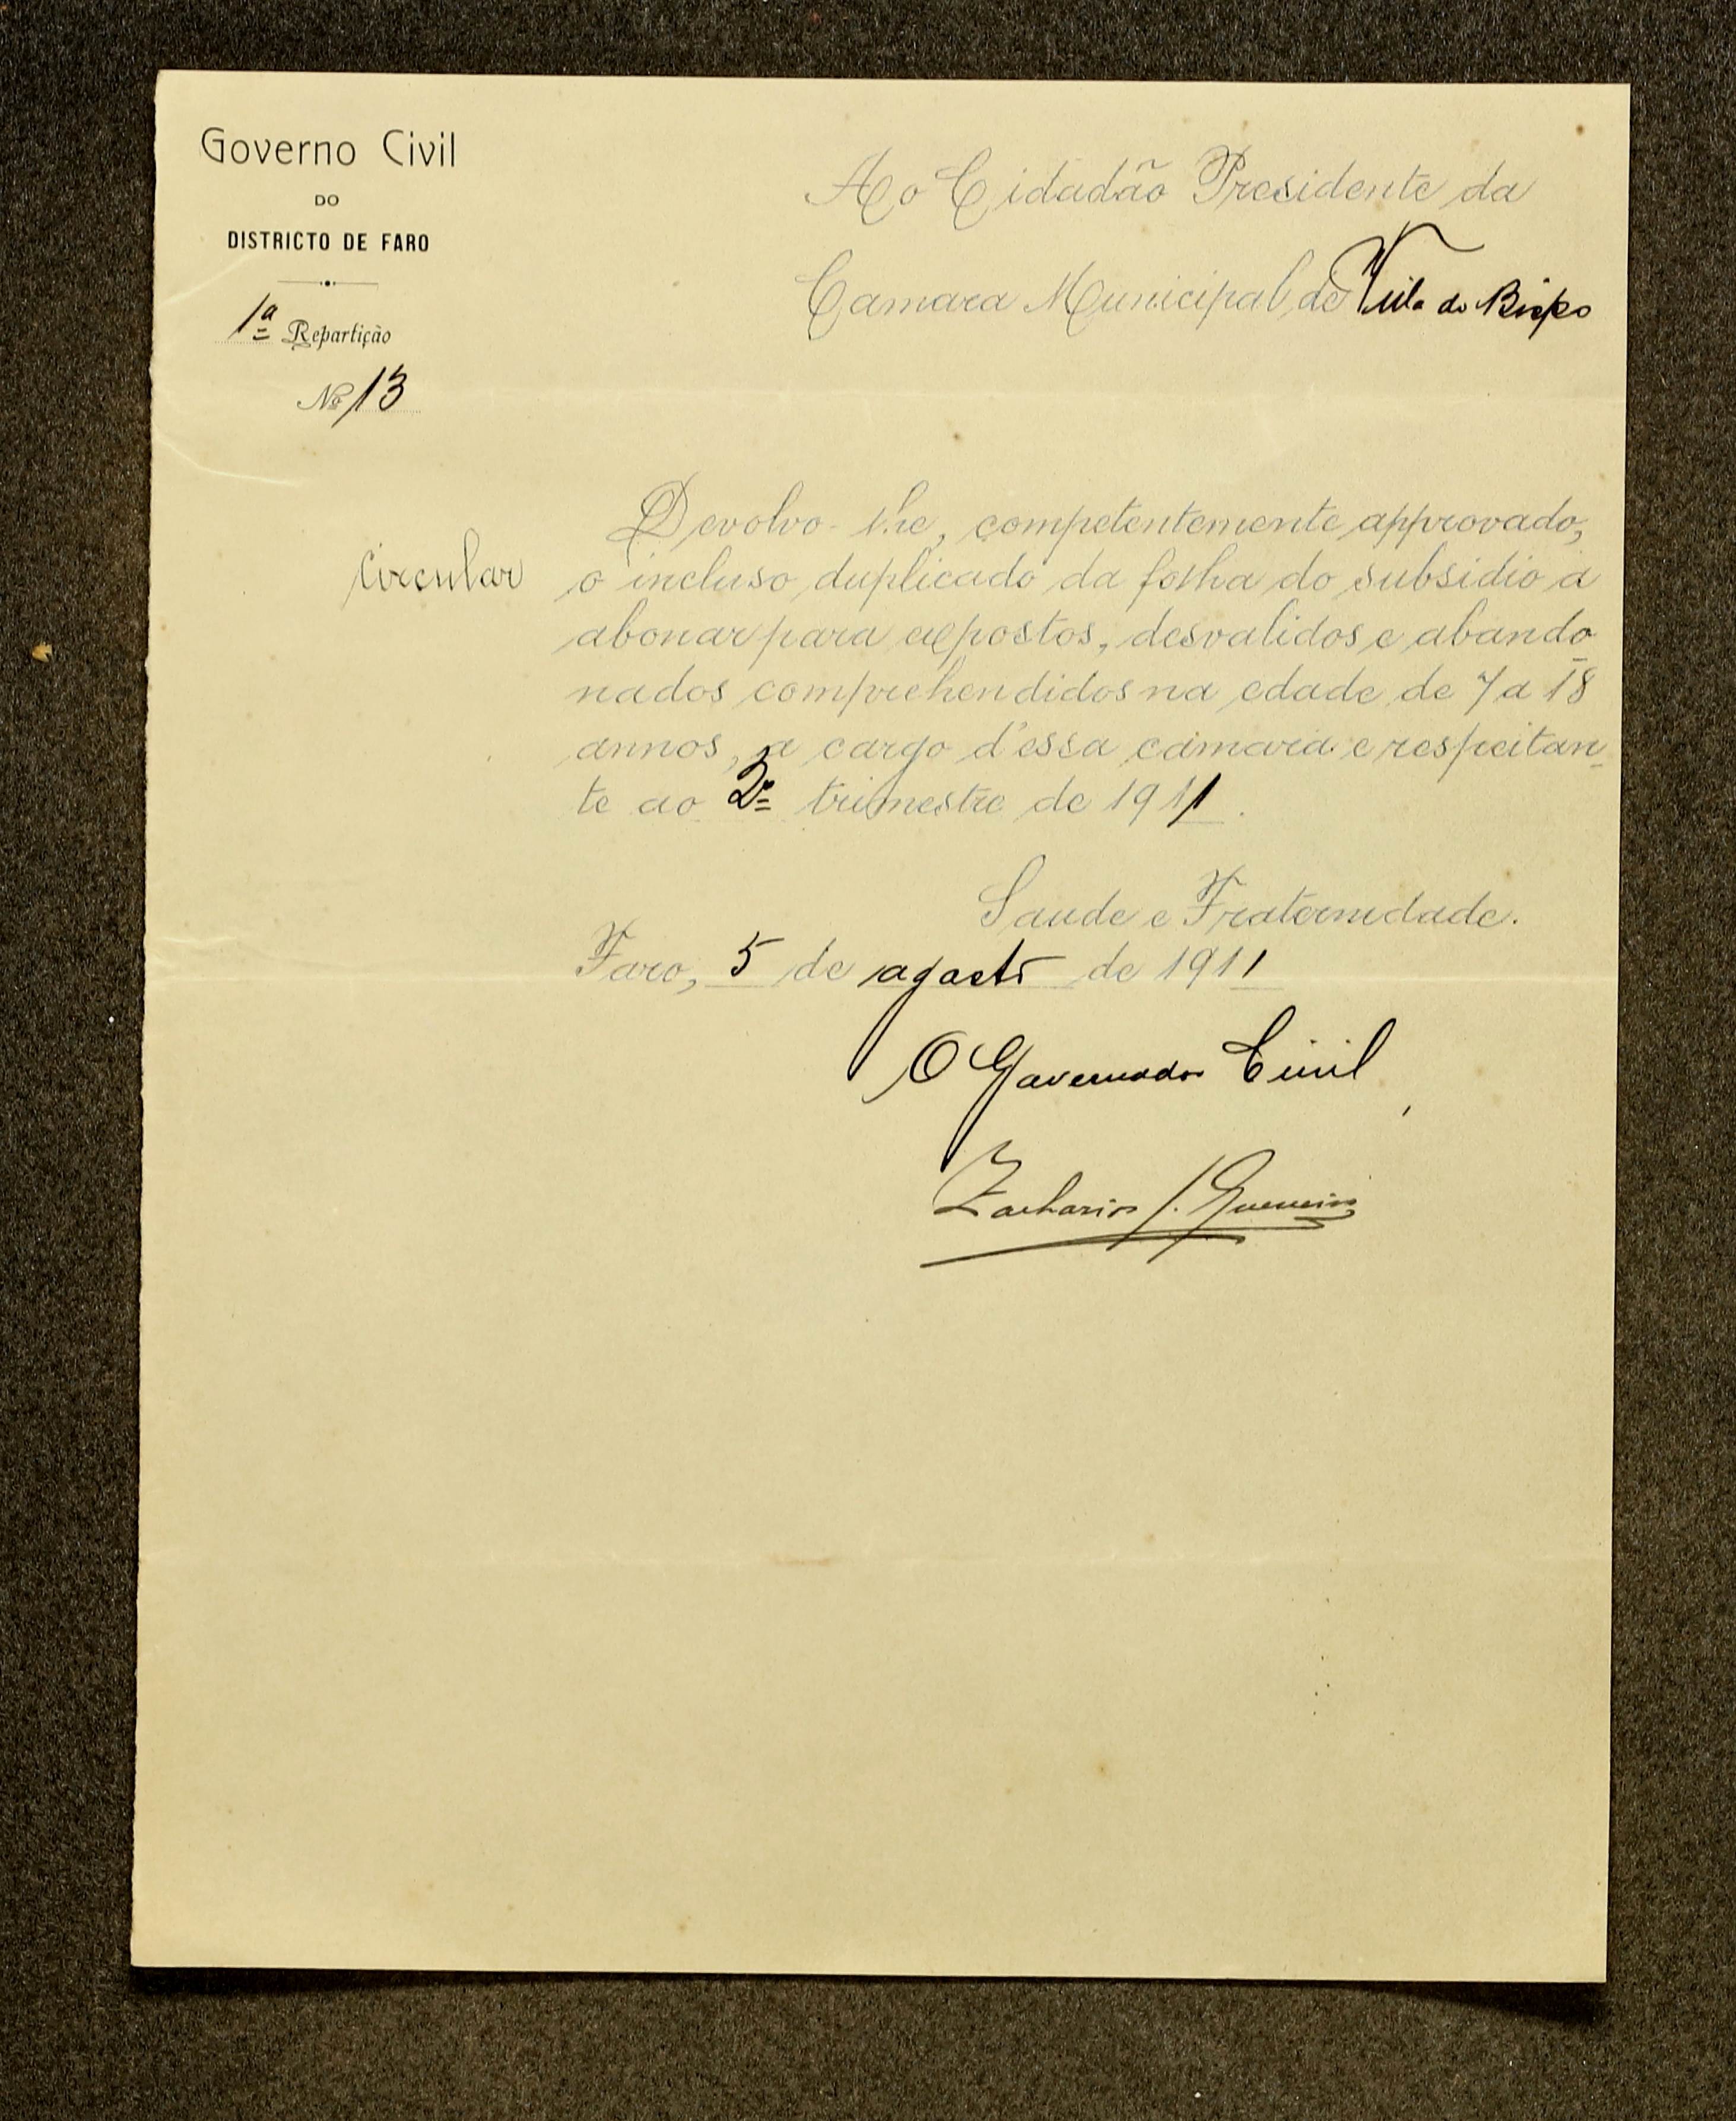 Governo Civil
DO
DISTRICTO DE FARO
1ª Repartição
Nº 13
Ao Cidadão Presidente da
Camara Municipal de Vila do Bispo
Circular
Devolvo-lhe, competentemente approvado,
o incluso duplicado da folha do subsidio a
abonar para expostos, desvalidos e abando
nados comprehendidos na edade de 7 a 18
annos, a cargo d'essa camara e respeitan-
te ao 2º trimestre de 1911.
Saude e Fraternidade.
Faro, 5 de agosto de 1911
O Governador Civil,
Zacharias J. Guerreiro